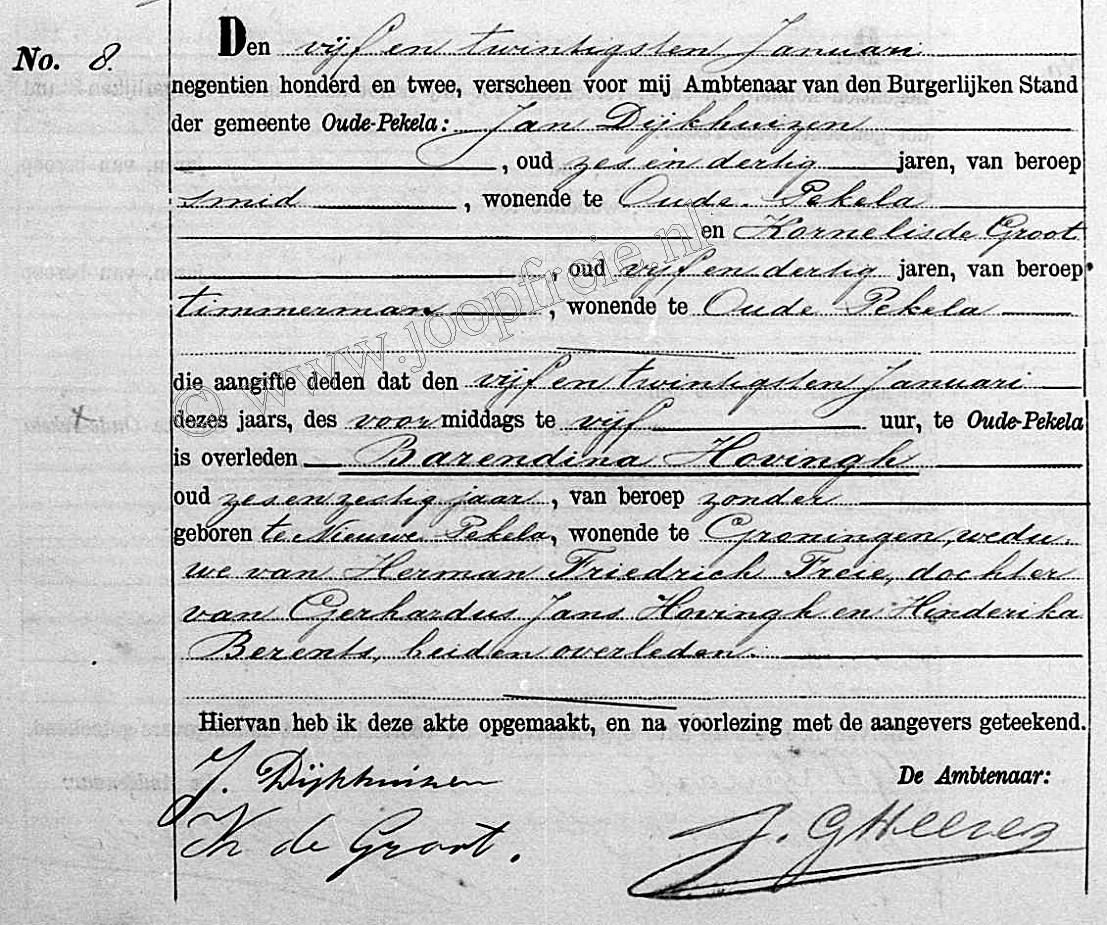 No. 8.
Den vijf en twintigsten Januari
negentien honderd en twee, verscheen voor mij Ambtenaar van den Burgerlijken Stand
der gemeente Oude-Pekela: Jan Dijkhuizen
, oud zes en dertig jaren, van beroep
smid, wonende te Oude Pekela
en Kornelis de Groot
, oud vijf en dertig jaren, van beroep
timmerman, wonende te Oude Pekela
die aangifte deden dat den vijf en twintigsten Januari
dezes jaars, des voormiddags te vijf uur, te Oude-Pekela
is overleden Barendina Hovingh
oud zes en zestig jaar, van beroep zonder
geboren te Nieuwe Pekela, wonende te Groningen, wedu-
we van Herman Friedrich Freie, dochter
van Gerhardus Jans Hovingh en Hinderika
Berents, beiden overleden.
Hiervan heb ik deze akte opgemaakt, en na voorlezing met de aangevers geteekend.
J. Dijkhuizen
De Ambtenaar:
K de Groot.
© www.joopfreie.nl